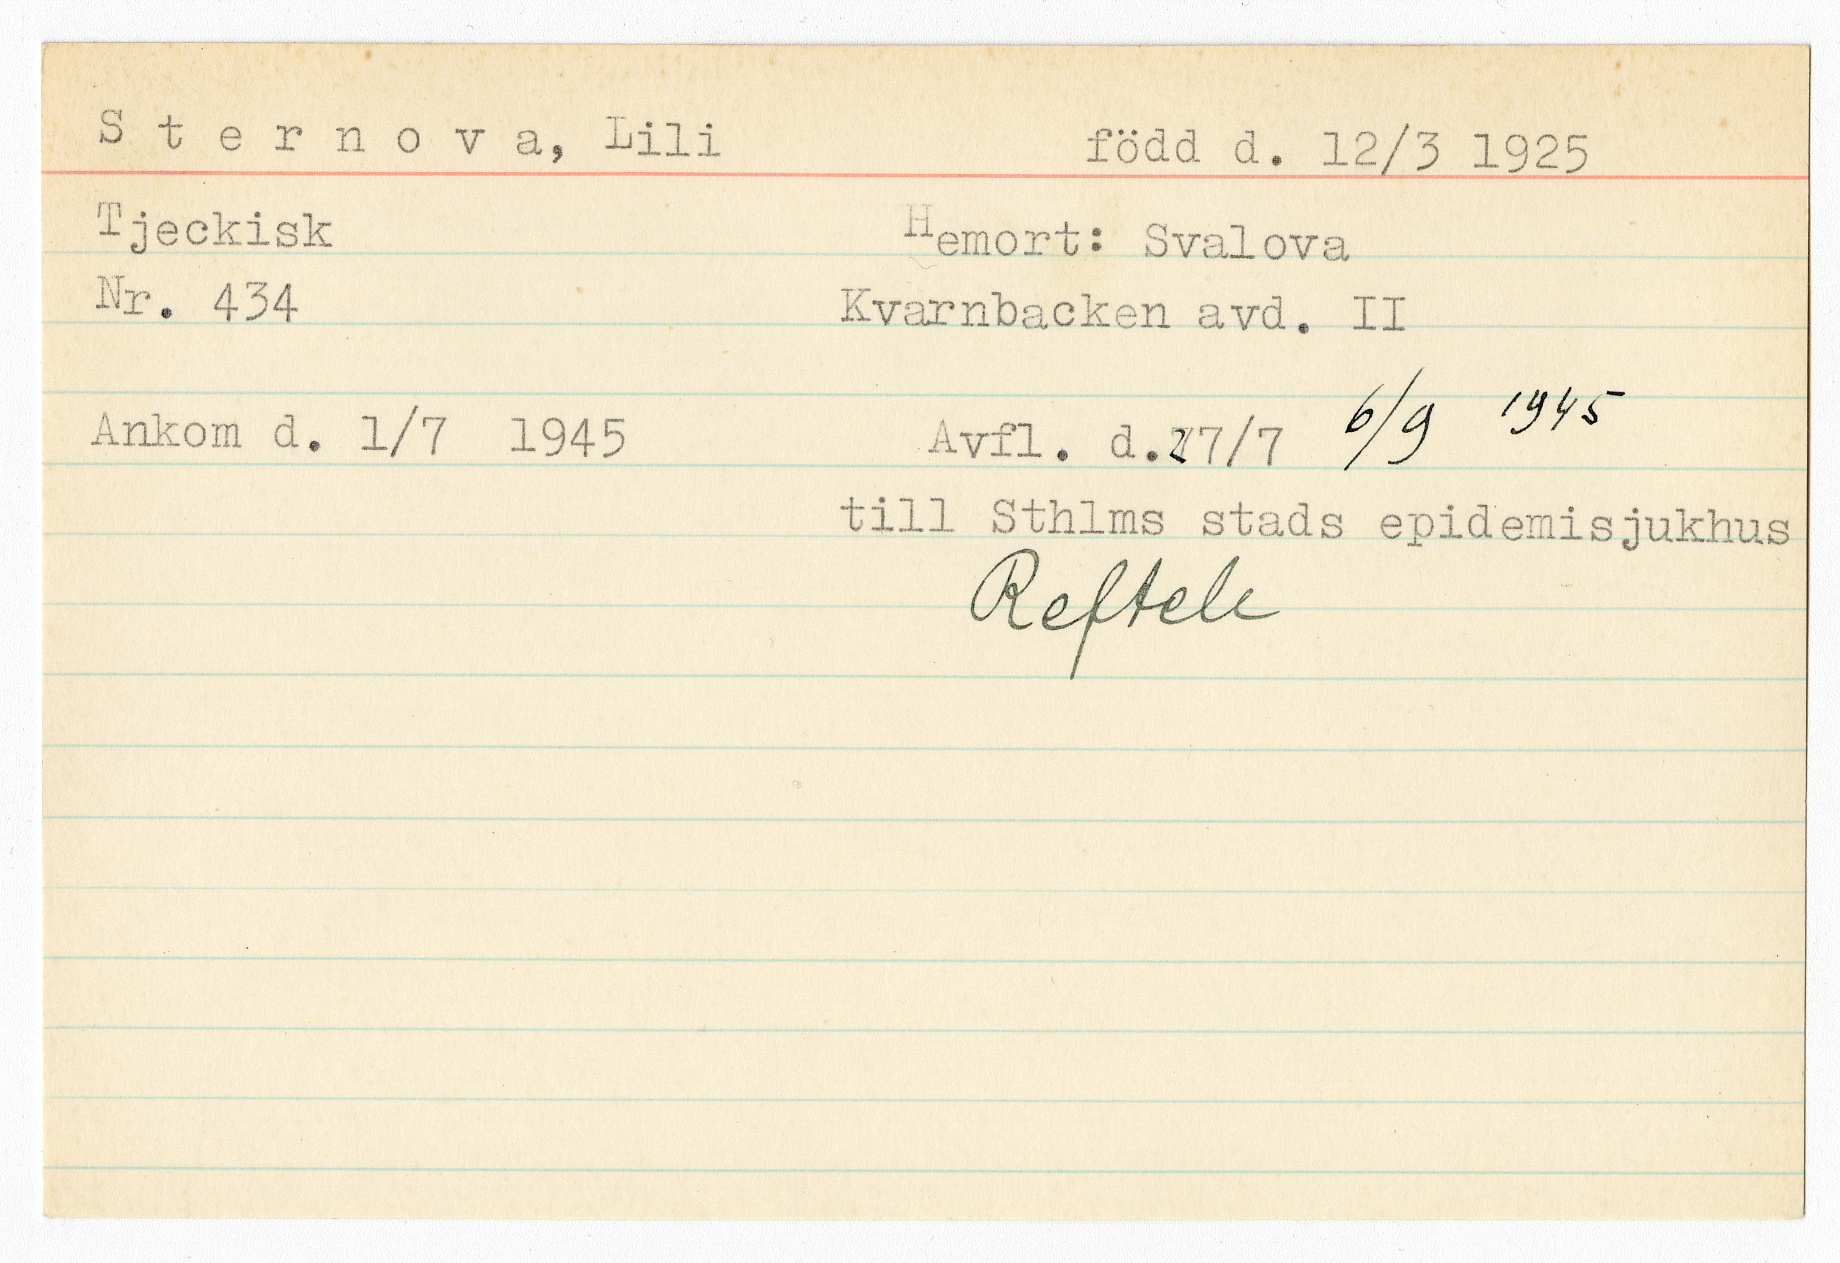 Sternova, Lili född d. 12/3 1925
Tjeckisk Hemort: Svalova
Nr. 434 Kvarnbacken avd. II
Ankom d. 1/7 1945 Avfl. d. 27/7 6/9 1945
till Sthlms stads epidemisjukhus
Reftele